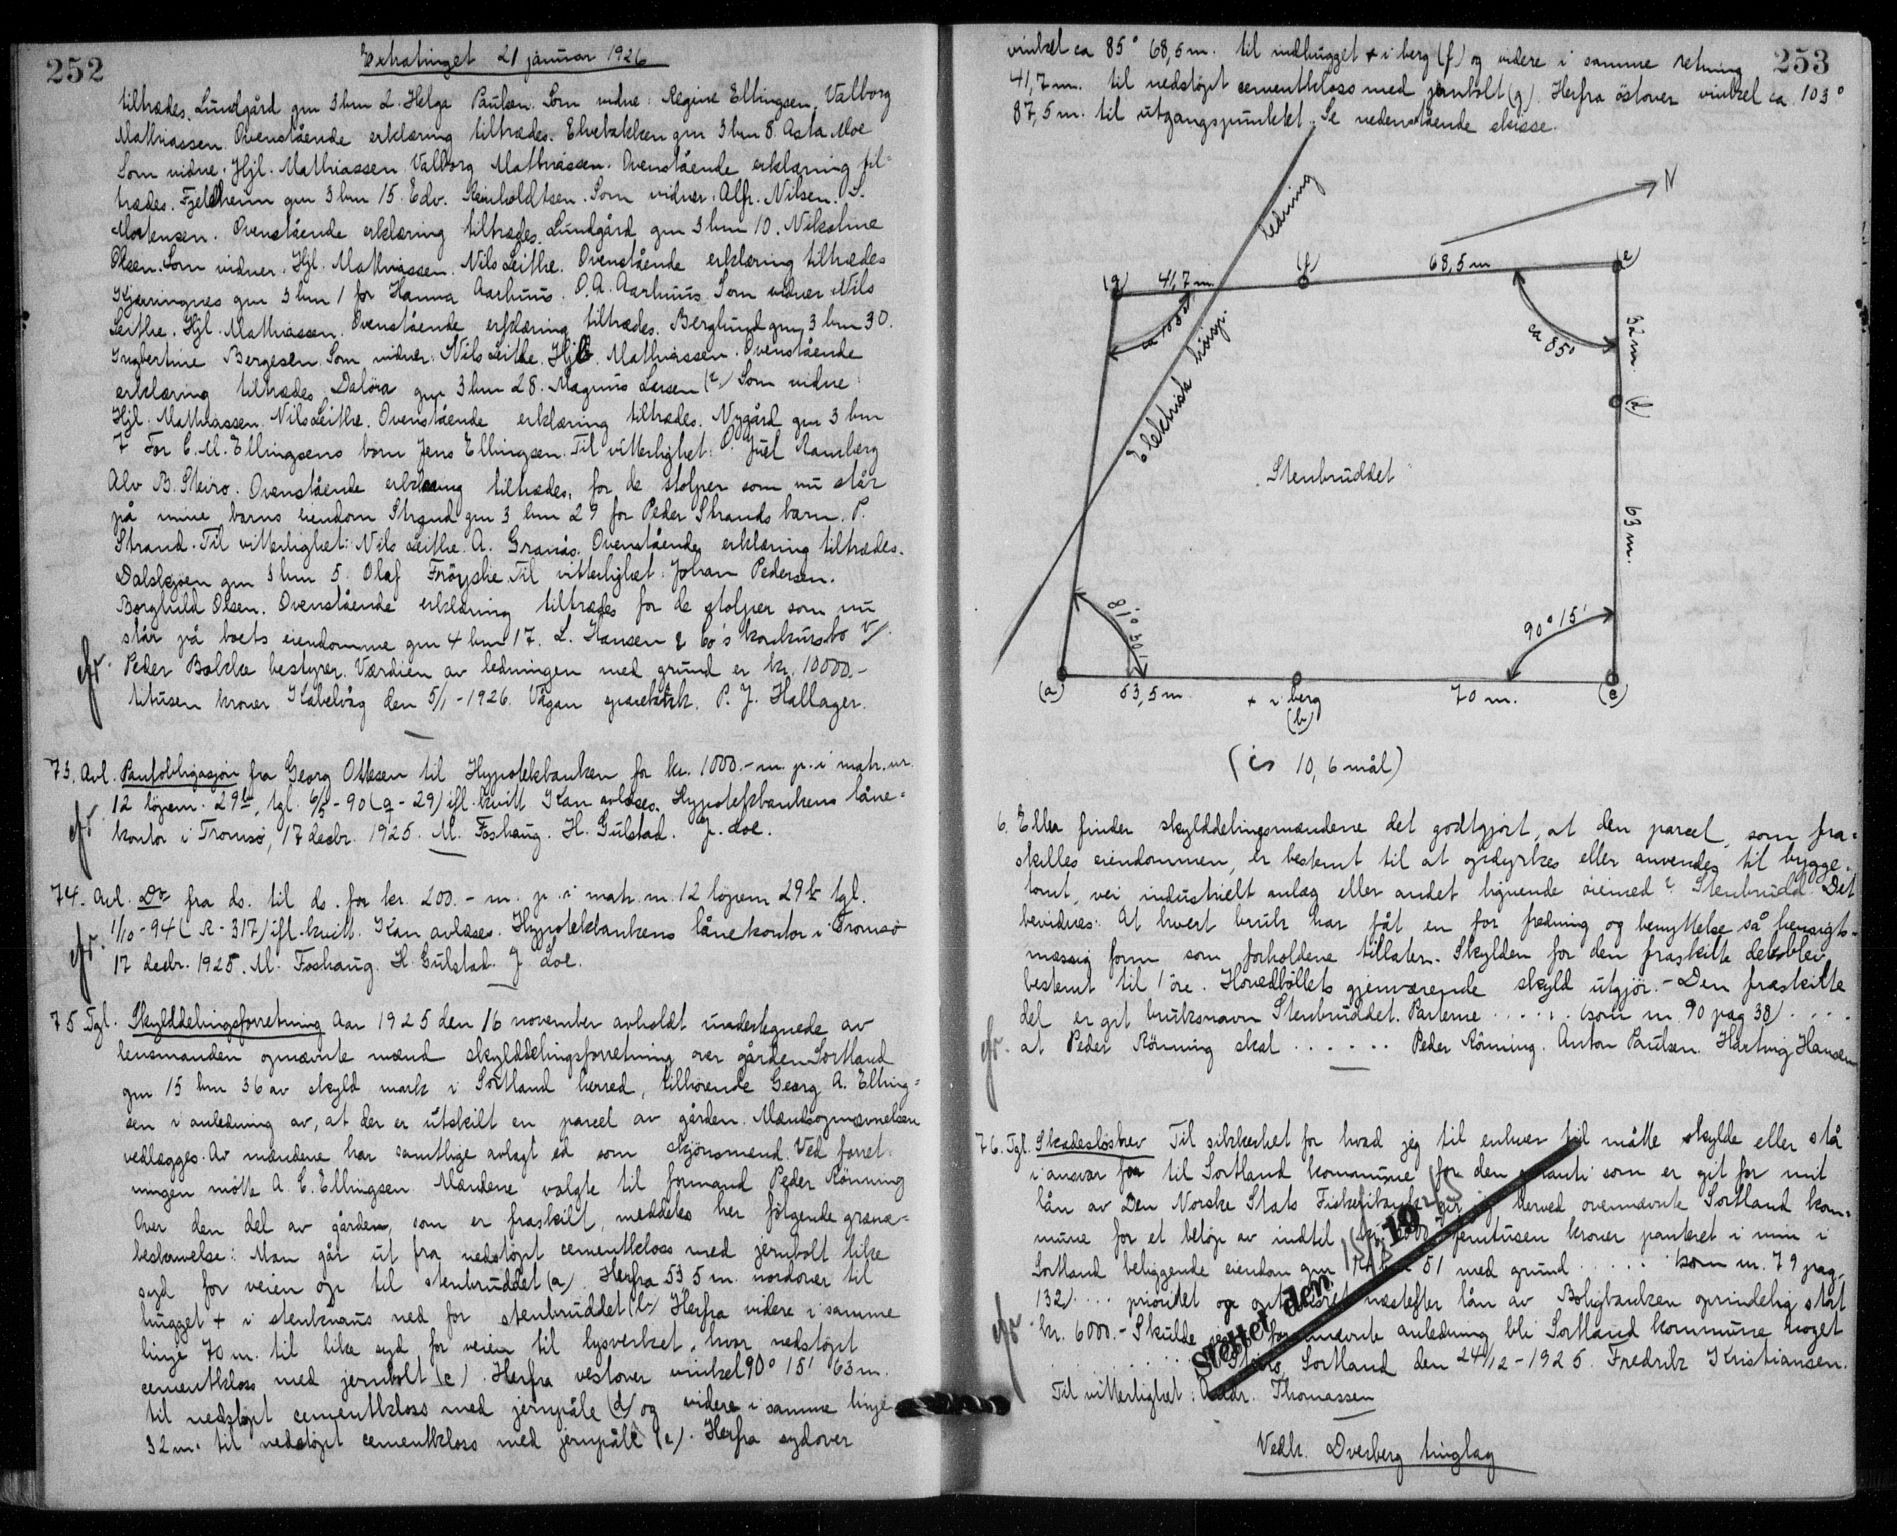 252
Extratinget 21 januar 1926
tiltrædes. Lundgård gnr 3 bnr 2. Helga Paulsen. Som vidne: Regine Ellingsen, Valborg
Mathiassen. Ovenstående erklæring tiltrædes. Elvebakken gnr 3 bnr 8. Asta Moe
Som vidne. Hjl. Mathiassen. Valborg Mathiassen. Ovenstående erklæring til-
trædes. Fjeldheim gnr 3 bnr 15. Edv. Reinholdtsen. Som vidner. Alfr. Nilsen.
Mortensen. Ovenstående erklæring tiltrædes. Lundgård gnr 3 bnr 10. Nikoline
Olsen. Som vidner. Hjl. Mathiassen. Nils Leithe. Ovenstående erklæring tiltrædes
Kjæringnes gnr 3 bnr 1 for Hanna Aarhuus. O. A. Aarhuus. Som vidner Nils
Leithe. Hjl. Mathiassen. Ovenstående erklæring tiltrædes. Berglund gnr 3 bnr 30.
Ingbertine Bergesen. Som vidner. Nils Leithe. Hjl. Mathiassen. Ovenstående
erklæring tiltrædes. Daløra gnr 3 bnr 28. Magnus Larsen (?) Som vidne
Hjl. Mathiassen. Nils Leithe. Ovenstående erklæring tiltrædes. Nygård gnr 3 bnr
7 For C. M. Ellingsens barn Jens Ellingsen. Til vitterlighet: P. Juel Ramberg
Alv B. Steiro. Ovenstående erklæring tiltrædes, for de stolper som nu står
på mine barns eiendom Strand gnr 3 bnr 29 for Peder Strands barn. P.
Strand. Til vitterlighet: Nils Leithe. A. Granås. Ovenstående erklæring tiltrædes.
Dalskjøen gnr 3 bnr 5. Olaf Frøyshe. Til vitterlighet: Johan Pedersen.
Borghild Olsen. Ovenstående erklæring tiltrædes for de stolper som nu
står på boets eiendomme gnr 4 bnr 17. L. Hansen & Co's konkursbo v/
Peder Bakke bestyrer. Værdien av ledningen med grund er kr. 10000.-
titusen kroner Kabelvåg den 5/1-1926. Vågan sparebank. P. J. Hallager.
73. Avl. Pantobligasjon fra Georg Ottesen til Hypotekbanken for kr. 1000.- m. p. i matr. nr.
12 løpenr. 29b, tgl. 6/5-90 (q-29) ifl. kvitt. Kan avlæses. Hypotekbankens låne-
kontor i Tromsø, 17 decbr. 1925. M. Foshaug. H. Gulstad. J. Loe.
74. Avl. Do fra ds. til ds. for kr. 200.- m. p. i matr. nr. 12 løpenr 29b tgl.
1/10-94 (R-317) ifl. kvitt. Kan avlæses. Hypotekbankens lånekontor i Tromsø
17 decbr. 1925. M. Foshaug. H. Gulstad. J. Loe.
75 Tgl. Skylddelingsforretning Aar 1925 den 16 november avholdt undertegnede av
lensmanden opnævnte mænd skylddelingsforretning over gården Sortland
gnr 15 bnr 36 av skyld mark i Sortland herred, tilhørende Georg A. Elling-
sen i anledning av, at der er utskilt en parcel av gården. Mandsopnævnelsen
vedlægges. Av mændene har samtlige avlagt ed som skjønsmænd. Ved forret-
ningen møtte A. C. Ellingsen. Mændene valgte til formand Peder Rönning
Over den del av gården, som er fraskilt, meddeles her følgende grænse-
beskrivelse: Man går ut fra nedstøpt cementkloss med jernbolt like
syd for veien op til stenbruddet (a). Herfra 53,5 m. nordover til
hugget + i stenknaus ned for stenbruddet (b) Herfra videre i samme
linje 70 m. til like syd for veien til lysverket, hvor nedstøpt
cementkloss med jernbolt (c). Herfra vestover vinkel 90° 15' 63 m.
til nedstøpt cementkloss med jernpåle (d) og videre i samme linje
32 m. til nedstøpt cementkloss med jernpåle (e). Herfra sydover
253
vinkel ca 85° 68,5 m. til indhugget + i berg (f) og videre i samme retning
41,7 m. til nedstøpt cementkloss med jernbolt (g). Herfra østover vinkel ca 103°
87,5 m. til utgangspunktet. Se nedenstående skisse.
N
ledning
(g) 41,7 m. (f) 68,5 m (e)
ca 103°
ca 85°
32 m
Elektrisk høisp.
(d)
Stenbruddet
63 m.
81° 30'
90° 15'
(a) 53,5 m. + i berg (b) 70 m. (c)
(ca 10,6 mål)
6. Eller finder skylddelingsmændene det godtgjort, at den parcel, som fra-
skilles eiendommen, er bestemt til at opdyrkes eller anvendes til bygge-
tomt, vei, industrielt anlæg eller andet lignende øiemed? Stenbrudd. Det
bevidnes: At hvert bruk har fåt en for fredning og benyttelse så hensigts-
mæssig form som forholdene tillater. Skylden for den fraskilte del blev
bestemt til 1 øre. Hovedbøllets gjenværende skyld utgjør.- Den fraskilte
del er git bruksnavn Stenbruddet. Parterne ...... (som nr. 90 pag 38) ....
at Peder Rönning skal ...... Peder Rönning. Anton Paulsen. Hartvig Hansen
76. Tgl. Skadesløsbrev Til sikkerhet for hvad jeg til enhver tid måtte skylde eller stå
i ansvar for til Sortland kommune for den garanti som er git for mit
lån av Den Norske Stats Fiskeribank gir jeg herved ovennævnte Sortland kom-
mune for et beløp av indtil kr. 5000 femtusen kroner panteret i min i
Sortland beliggende eiendom gnr bnr 51 med grund ..... (som nr. 79 pag.
132) .... prioritet og opt næstefter lån av Boligbanken oprindelig stort
kr. 6000.- Skulde nævnte anledning bli Sortland kommune noget
Sortland den 24/12-1925. Fredrik Kristiansen.
Til vitterlighet: Thomassen
Slettet den 19
Vedk. Dverberg tinglag